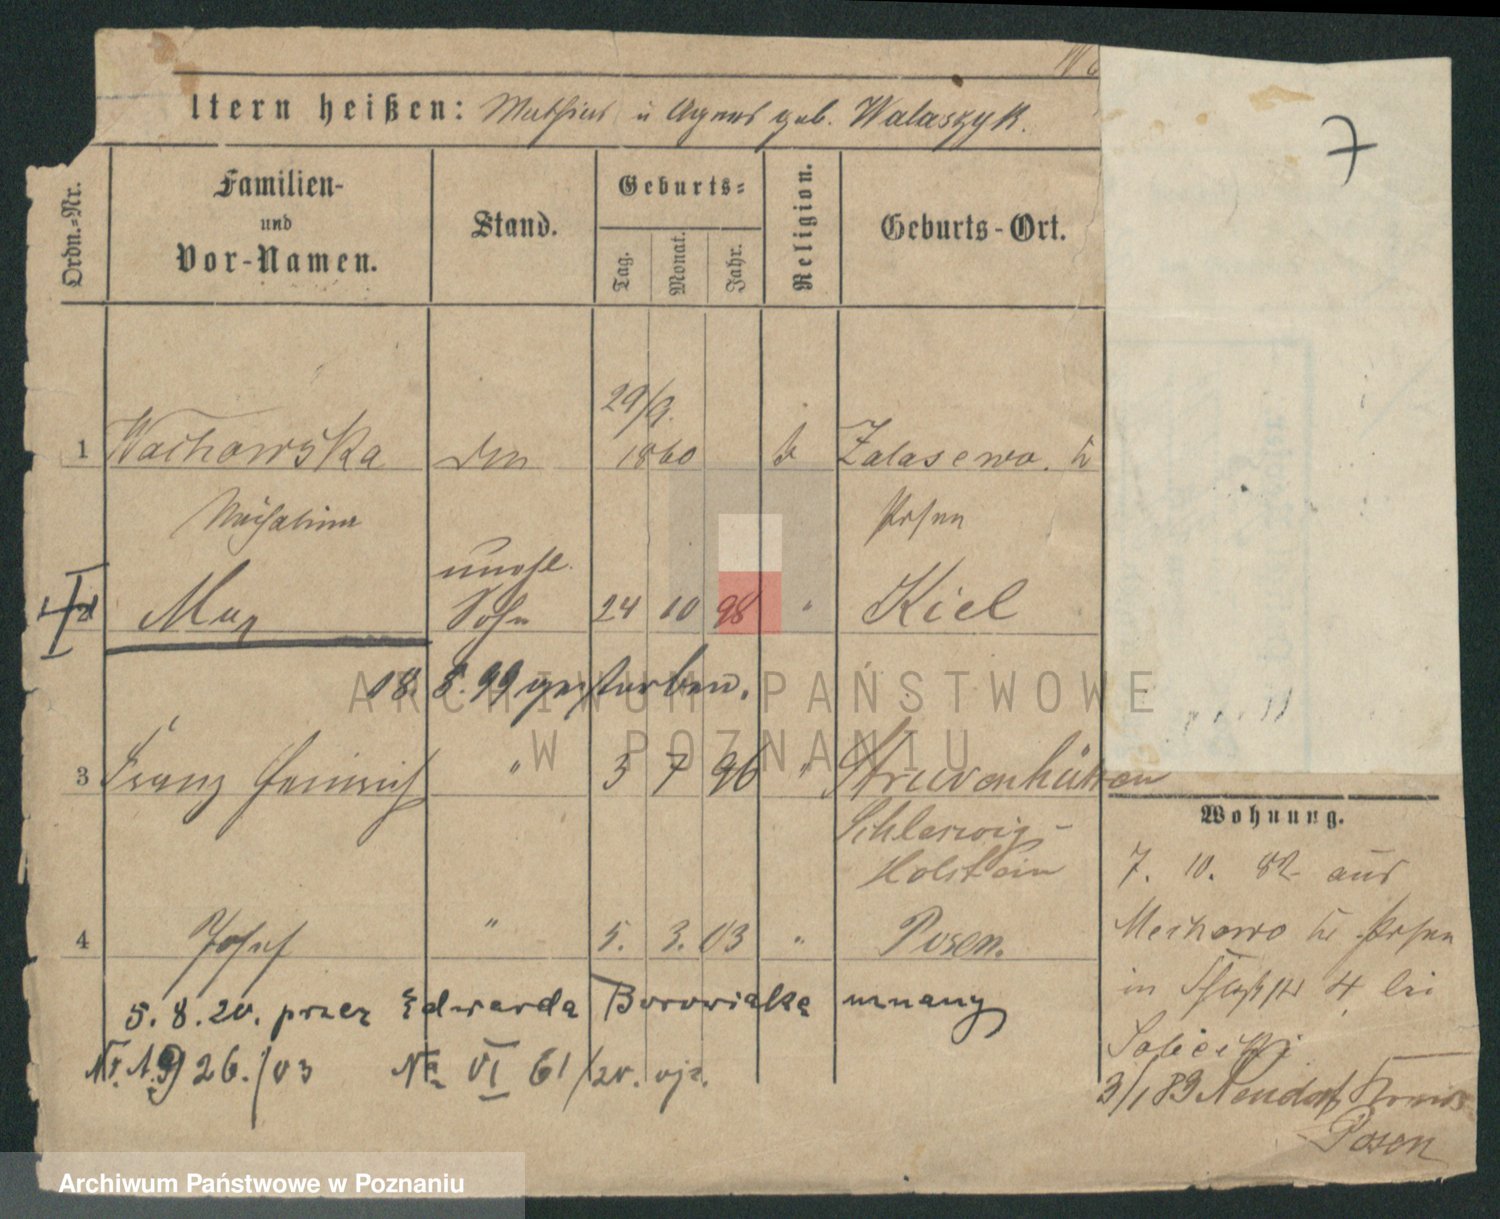 7
ltern heißen: Mathias u Agnes geb. Walaszyk.
Ordn.-Nr.
Familien-
und
Vor-Namen.
Stand.
Geburts-
Tag.
Monat.
Jahr.
Religion.
Geburts-Ort.
29/9.
1 Wachowska 1860 k Zalasewo. Kr
Posen
unehl.
Max Sohn 24 10 98 " Kiel
18. 8. 99 gestorben.
3 Franz Heinrich " 3 7 96 " Struvenhütten
Schleswig-
Holstein
4 Josef " 5. 3. 03 " Posen.
5. 8. 20. przez Edwarda Borowiaka uznany
Nr. A. 26./03 No VI 61/20. ojc.
Wohnung.
7. 10. 82 aus
Mechowo Kr Posen
in 4 bei
3/1 83 Neudorf Kreis
Posen
ARCHIWUM PAŃSTWOWE
W POZNANIU
Archiwum Państwowe w Poznaniu